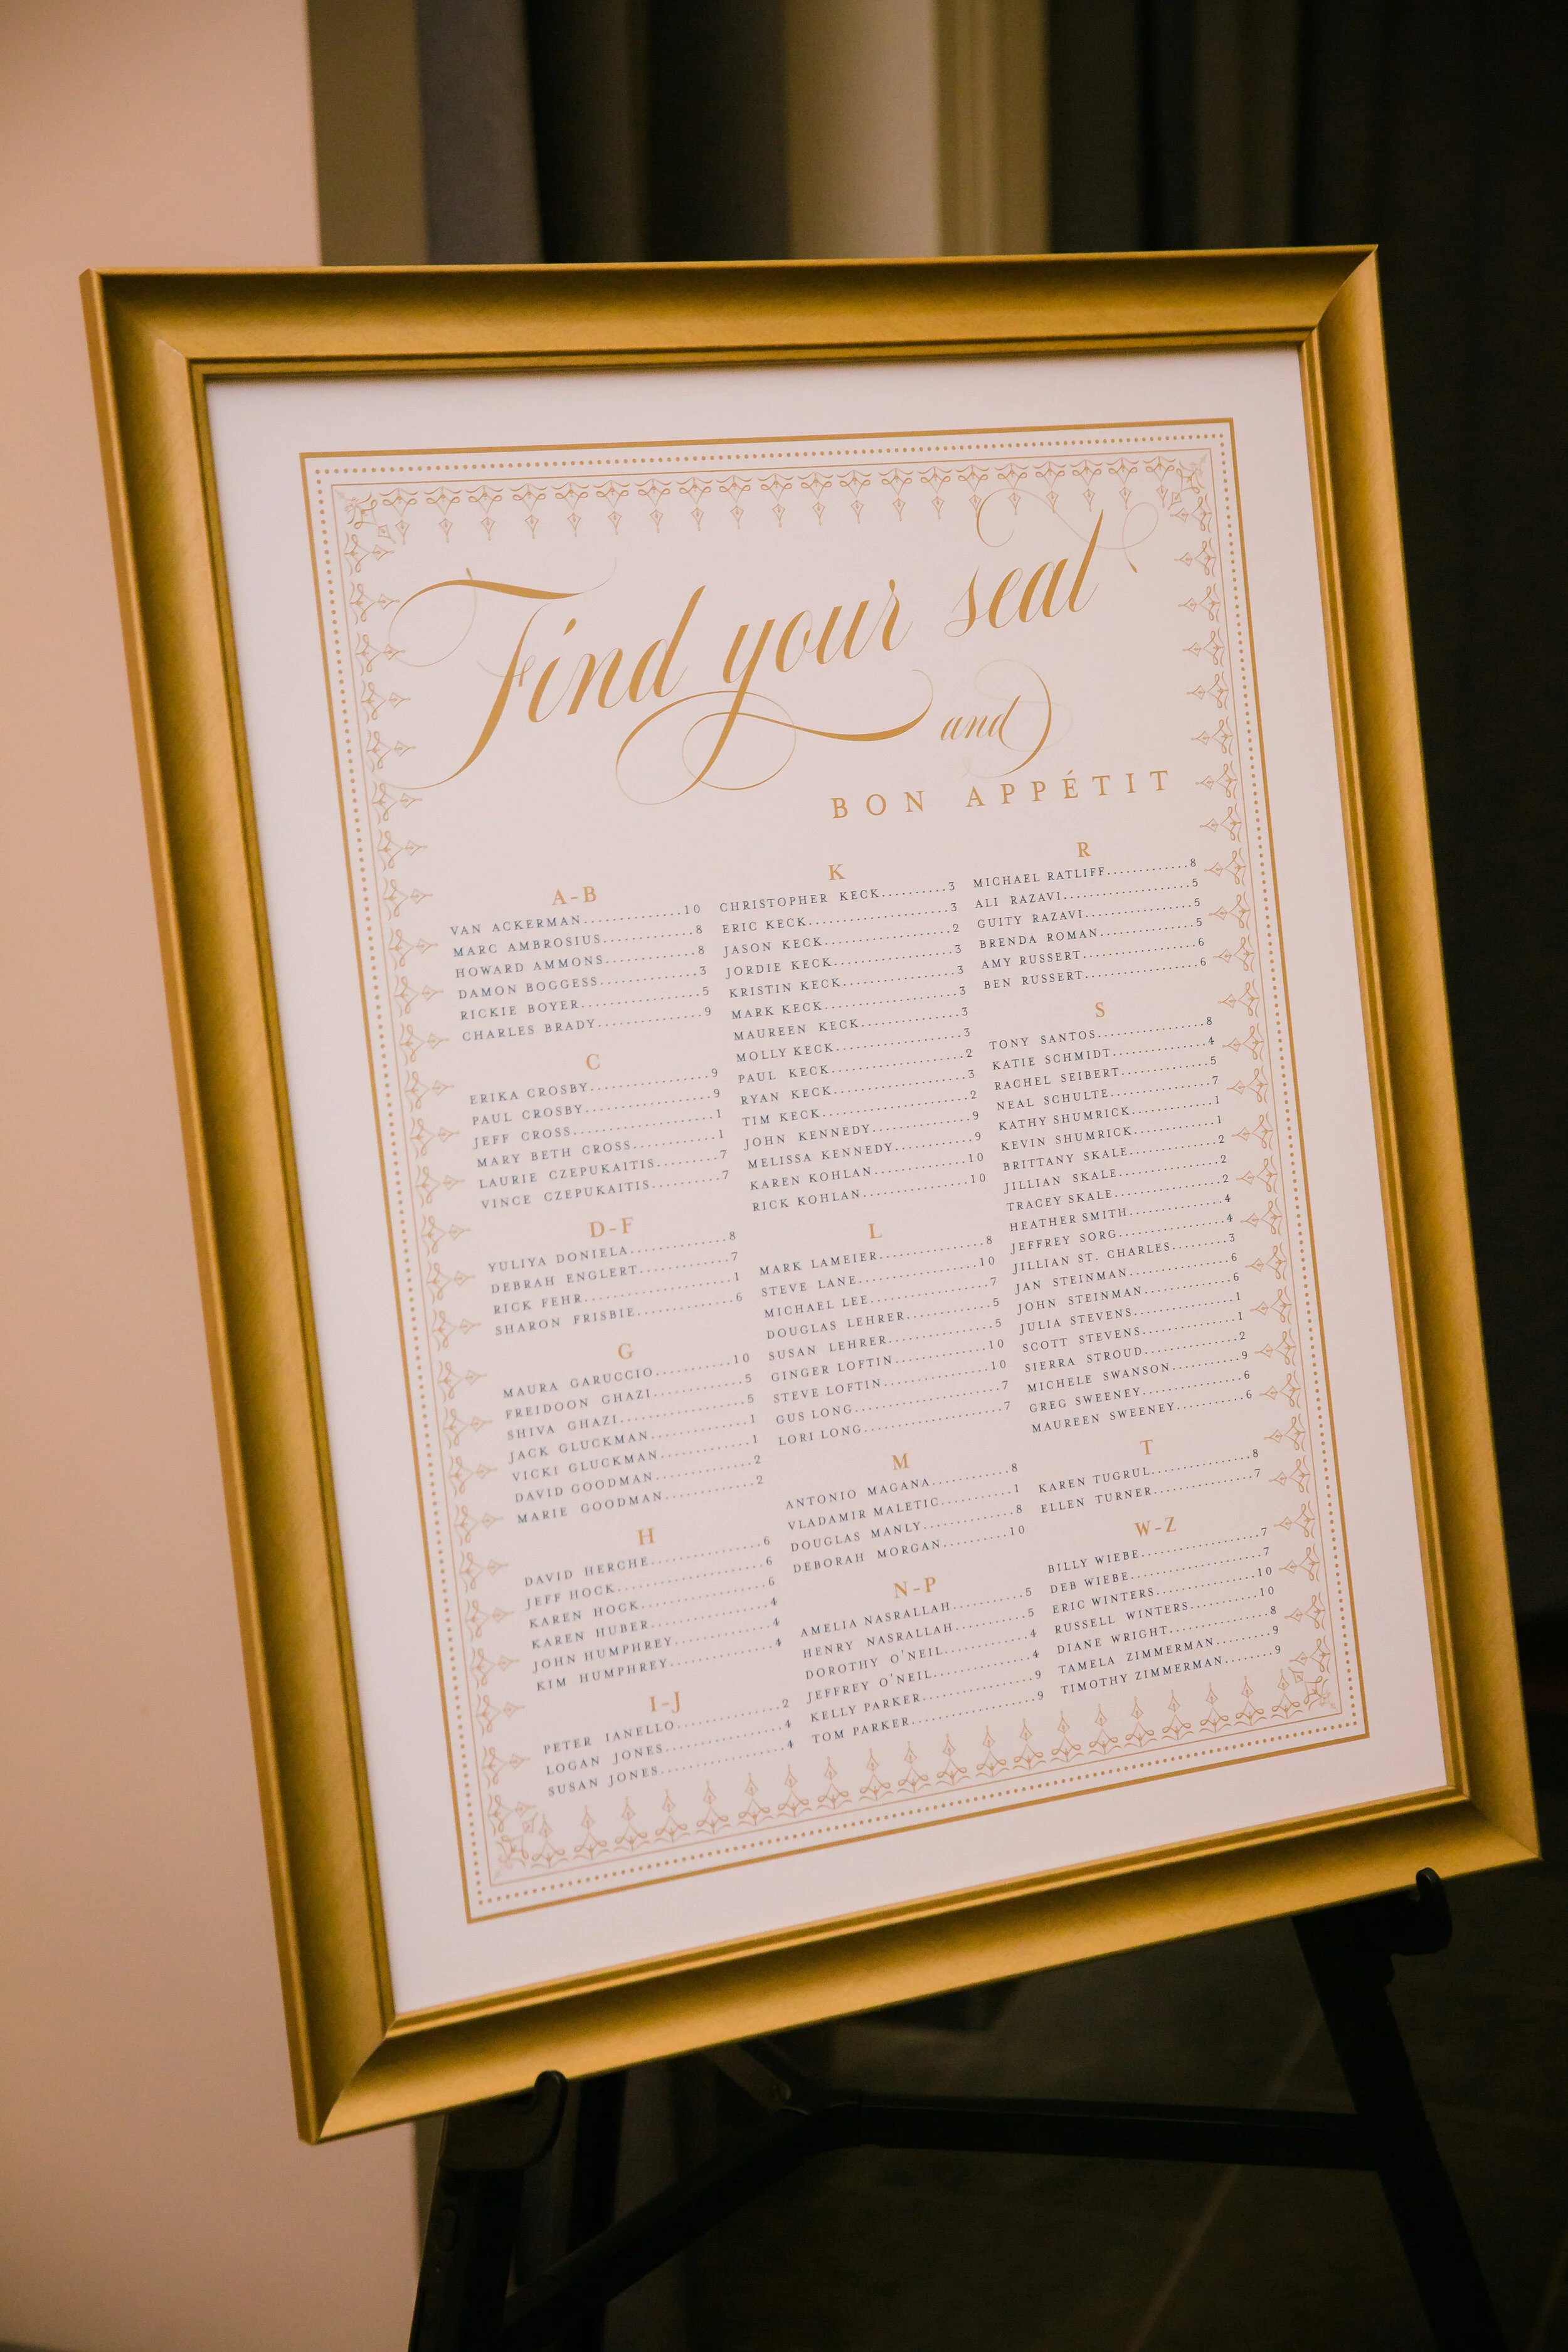 Find your seat
and
BON APPÉTIT
A-B
VAN ACKERMAN.............10
MARC AMBROSIUS............8
HOWARD AMMONS............8
DAMON BOGGESS.............3
RICKIE BOYER................5
CHARLES BRADY..............9
C
ERIKA CROSBY................9
PAUL CROSBY.................9
JEFF CROSS...................1
MARY BETH CROSS...........1
LAURIE CZEPUKAITIS.........7
VINCE CZEPUKAITIS..........7
D-F
YULIYA DONIELA.............8
DEBRAH ENGLERT............7
RICK FEHR....................1
SHARON FRISBIE.............6
G
MAURA GARUCCIO..........10
FREIDOON GHAZI............5
SHIVA GHAZI.................5
JACK GLUCKMAN.............1
VICKI GLUCKMAN............1
DAVID GOODMAN............2
MARIE GOODMAN............2
H
DAVID HERCHE...............6
JEFF HOCK....................6
KAREN HOCK.................6
KAREN HUBER................4
JOHN HUMPHREY............4
KIM HUMPHREY..............4
I-J
PETER IANELLO..............2
LOGAN JONES................4
SUSAN JONES................4
K
CHRISTOPHER KECK..........3
ERIC KECK...................3
JASON KECK.................2
JORDIE KECK................3
KRISTIN KECK...............3
MARK KECK..................3
MAUREEN KECK.............3
MOLLY KECK.................3
PAUL KECK..................2
RYAN KECK..................3
TIM KECK....................2
JOHN KENNEDY.............9
MELISSA KENNEDY..........9
KAREN KOHLAN............10
RICK KOHLAN..............10
L
MARK LAMEIER..............8
STEVE LANE................10
MICHAEL LEE................7
DOUGLAS LEHRER...........5
SUSAN LEHRER..............5
GINGER LOFTIN............10
STEVE LOFTIN..............10
GUS LONG...................7
LORI LONG..................7
M
ANTONIO MAGANA..........8
VLADAMIR MALETIC.........1
DOUGLAS MANLY............8
DEBORAH MORGAN.........10
N-P
AMELIA NASRALLAH.........5
HENRY NASRALLAH.........5
DOROTHY O'NEIL...........4
JEFFREY O'NEIL.............4
KELLY PARKER..............9
TOM PARKER................9
R
MICHAEL RATLIFF...........8
ALI RAZAVI.................5
GUITY RAZAVI..............5
BRENDA ROMAN............5
AMY RUSSERT..............6
BEN RUSSERT...............6
S
TONY SANTOS..............8
KATIE SCHMIDT.............4
RACHEL SEIBERT............5
NEAL SCHULTE.............7
KATHY SHUMRICK..........1
KEVIN SHUMRICK..........1
BRITTANY SKALE...........2
JILLIAN SKALE.............2
TRACEY SKALE.............2
HEATHER SMITH............4
JEFFREY SORG..............4
JILLIAN ST. CHARLES.......3
JAN STEINMAN.............6
JOHN STEINMAN...........6
JULIA STEVENS.............1
SCOTT STEVENS............1
SIERRA STROUD............2
MICHELE SWANSON.........9
GREG SWEENEY............6
MAUREEN SWEENEY.......6
T
KAREN TUGRUL............8
ELLEN TURNER.............7
W-Z
BILLY WIEBE...............7
DEB WIEBE................7
ERIC WINTERS............10
RUSSELL WINTERS........10
DIANE WRIGHT............8
TAMELA ZIMMERMAN......9
TIMOTHY ZIMMERMAN.....9